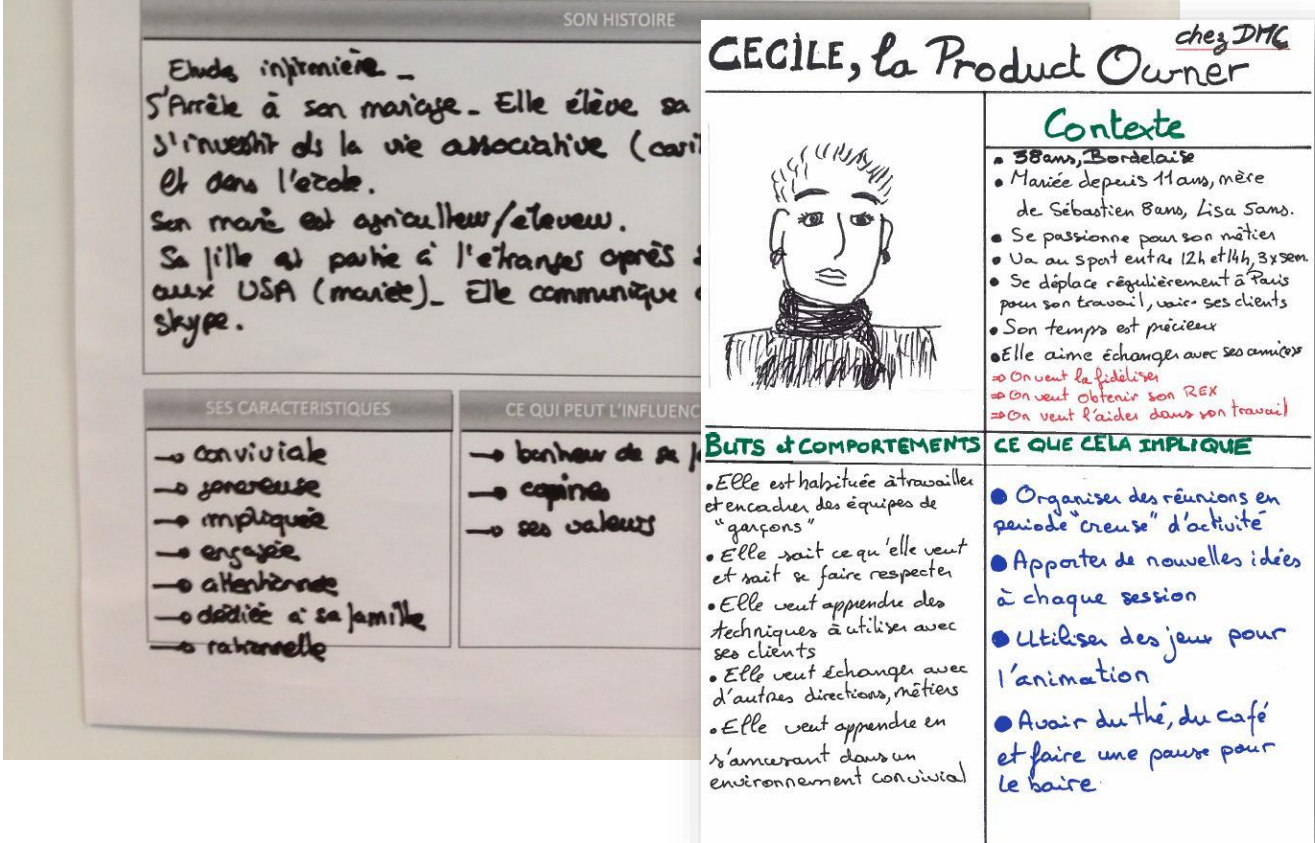 SON HISTOIRE
Etude infirmière -
S'Arrête à son mariage - Elle élève sa
s'investit ds la vie associative (cari
et dans l'école.
Son mari est agriculteur/eleveur.
Sa fille est partie à l'etranger après
aux USA (mariée) - Elle communique
skype.
SES CARACTERISTIQUES
→ conviviale
→ genereuse
→ impliquée
→ engagée
→ attentionnée
→ dédiée à sa famille
→ rationnelle
CE QUI PEUT L'INFLUENC
→ bonheur de sa
→ copines
→ ses valeurs
CECILE, la Product Owner
chez DMC
Contexte
• 38ans, Bordelaise
• Mariée depuis 11 ans, mère
de Sébastien 8ans, Lisa 5ans.
• Se passionne pour son métier
• Va au sport entre 12h et 14h, 3xsem
• Se déplace régulièrement à Paris
pour son travail, voir ses clients
• Son temps est précieux
• Elle aime échanger avec ses amicos
⇒ On veut la fidéliser
⇒ On veut obtenir son REX
⇒ On veut l'aider dans son travail
BUTS et COMPORTEMENTS
• Elle est habituée à travailler
et encadrer des équipes de
"garçons"
• Elle sait ce qu'elle veut
et sait se faire respecter
• Elle veut apprendre des
techniques à utiliser avec
ses clients
• Elle veut échanger avec
d'autres directions, métiers
• Elle veut apprendre en
s'amusant dans un
environnement convivial
CE QUE CELA IMPLIQUE
• Organiser des réunions en
periode "creuse" d'activité
• Apporter de nouvelles idées
à chaque session
• Utiliser des jeux pour
l'animation
• Avoir du thé, du café
et faire une pause pour
le boire